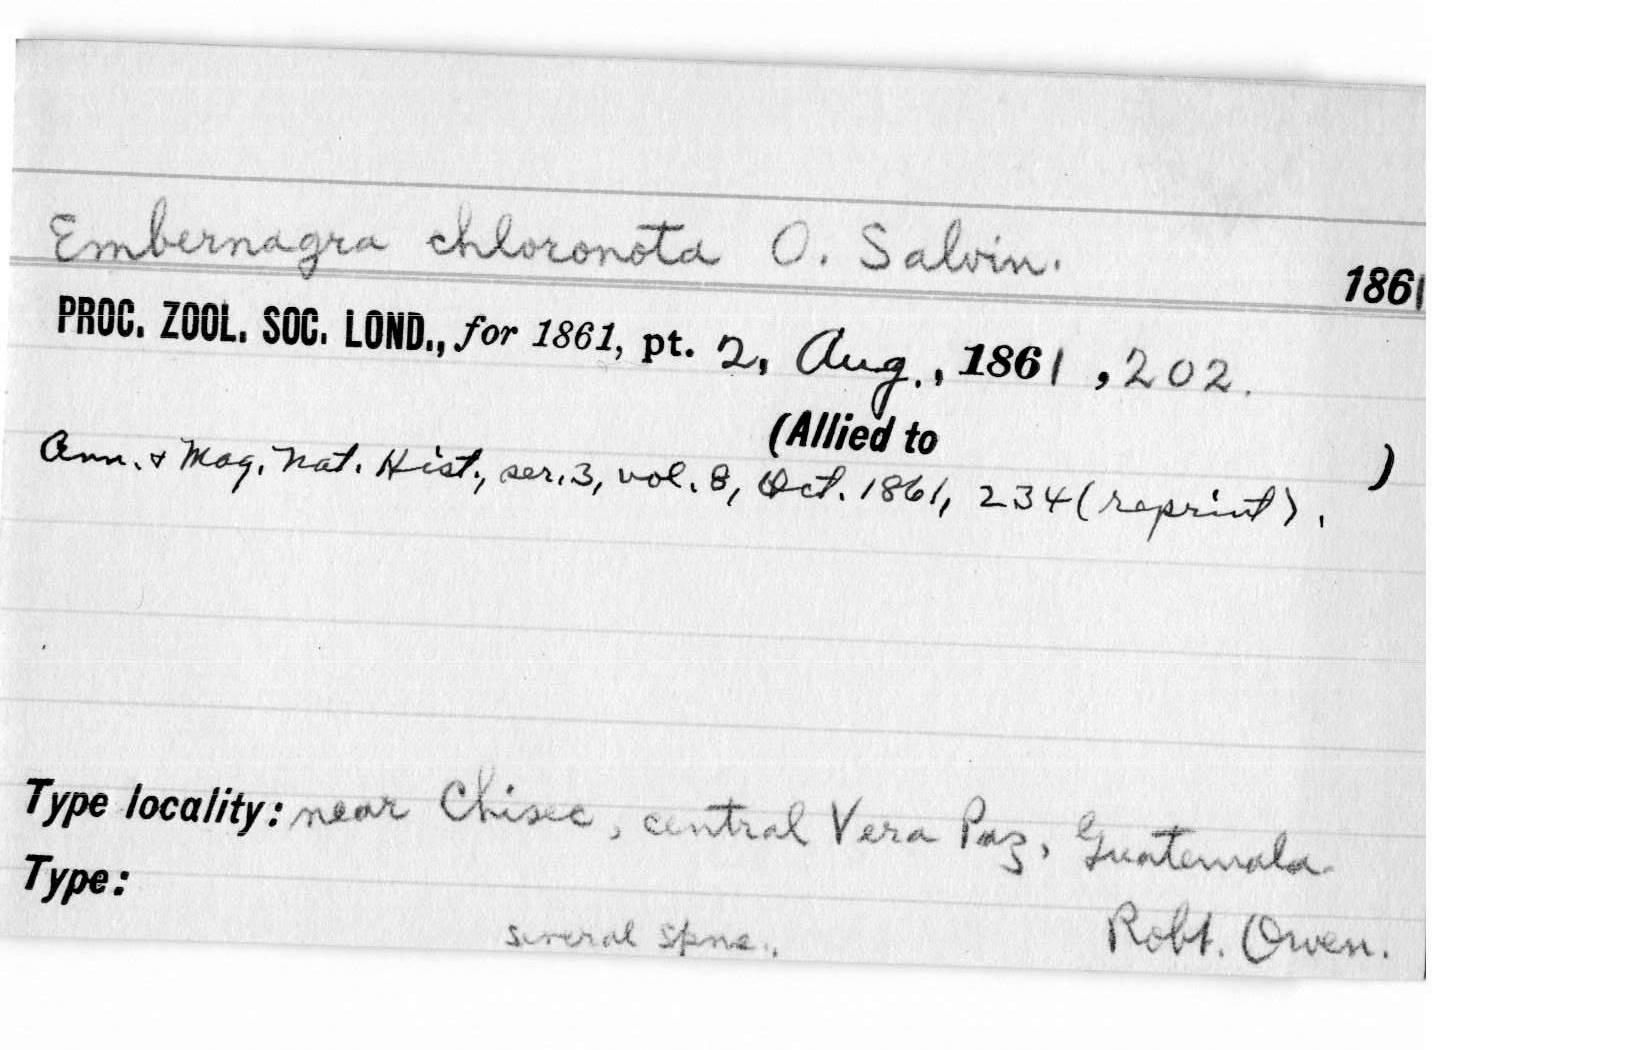 Embernagra chloronota O. Salvin.
1861
PROC. ZOOL. SOC. LOND., for 1861, pt. 2, Aug., 1861, 202.
(Allied to )
Ann. & Mag. Nat. Hist., ser. 3, vol. 8, Oct. 1861, 234 (reprint).
Type locality: near Chisec, central Vera Paz, Guatemala
Type:
several spns., Robt. Owen.